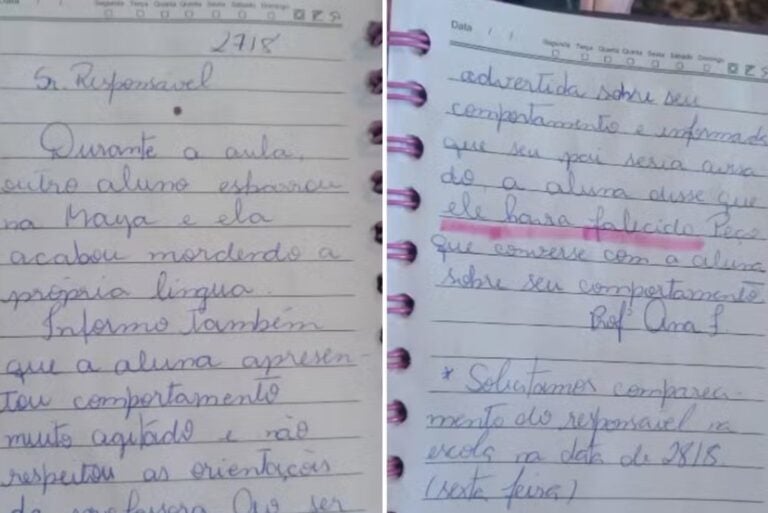 Data / /
Segunda Terça Quarta Quinta Sexta Sábado Domingo
27/8
Sr. Responsável
Durante a aula,
outro aluno esbarrou
na Maya e ela
acabou mordendo a
própria língua.
Informo também
que a aluna apresen-
tou comportamento
muito agitado e não
respeitou as orientações
da professora. Ao ser
Data / /
Segunda Terça Quarta Quinta Sexta Sábado Domingo
advertida sobre seu
comportamento e informada
que seu pai seria avisa
do, a aluna disse que
ele havia falecido. Peço
que converse com a aluna
sobre seu comportamento
Profª Ana F.
* Solicitamos compareci-
mento do responsável na
escola na data de 28/8.
(sexta feira)